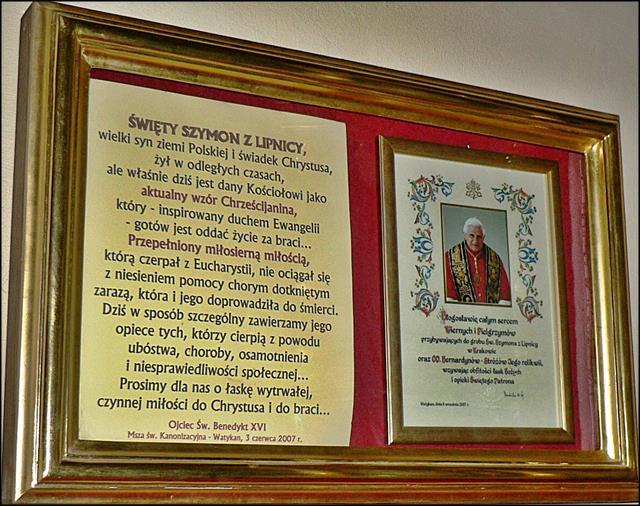 ŚWIĘTY SZYMON Z LIPNICY,
wielki syn ziemi Polskiej i świadek Chrystusa,
żył w odległych czasach,
ale właśnie dziś jest dany Kościołowi jako
aktualny wzór Chrześcijanina,
który - inspirowany duchem Ewangelii
- gotów jest oddać życie za braci...
Przepełniony miłosierną miłością,
którą czerpał z Eucharystii, nie ociągał się
z niesieniem pomocy chorym dotkniętym
zarazą, która i jego doprowadziła do śmierci.
Dziś w sposób szczególny zawierzamy jego
opiece tych, którzy cierpią z powodu
ubóstwa, choroby, osamotnienia
i niesprawiedliwości społecznej...
Prosimy dla nas o łaskę wytrwałej,
czynnej miłości do Chrystusa i do braci...
Ojciec Św. Benedykt XVI
Msza św. Kanonizacyjna - Watykan, 3 czerwca 2007 r.
Błogosławię całym sercem
Wiernych i Pielgrzymów
przybywających do grobu Św. Szymona z Lipnicy
w Krakowie
oraz OO. Bernardynów - Stróżów Jego relikwii,
wzywając obfitości łask Bożych
i opieki Świętego Patrona
Watykan, dnia 8 września 2007 r.